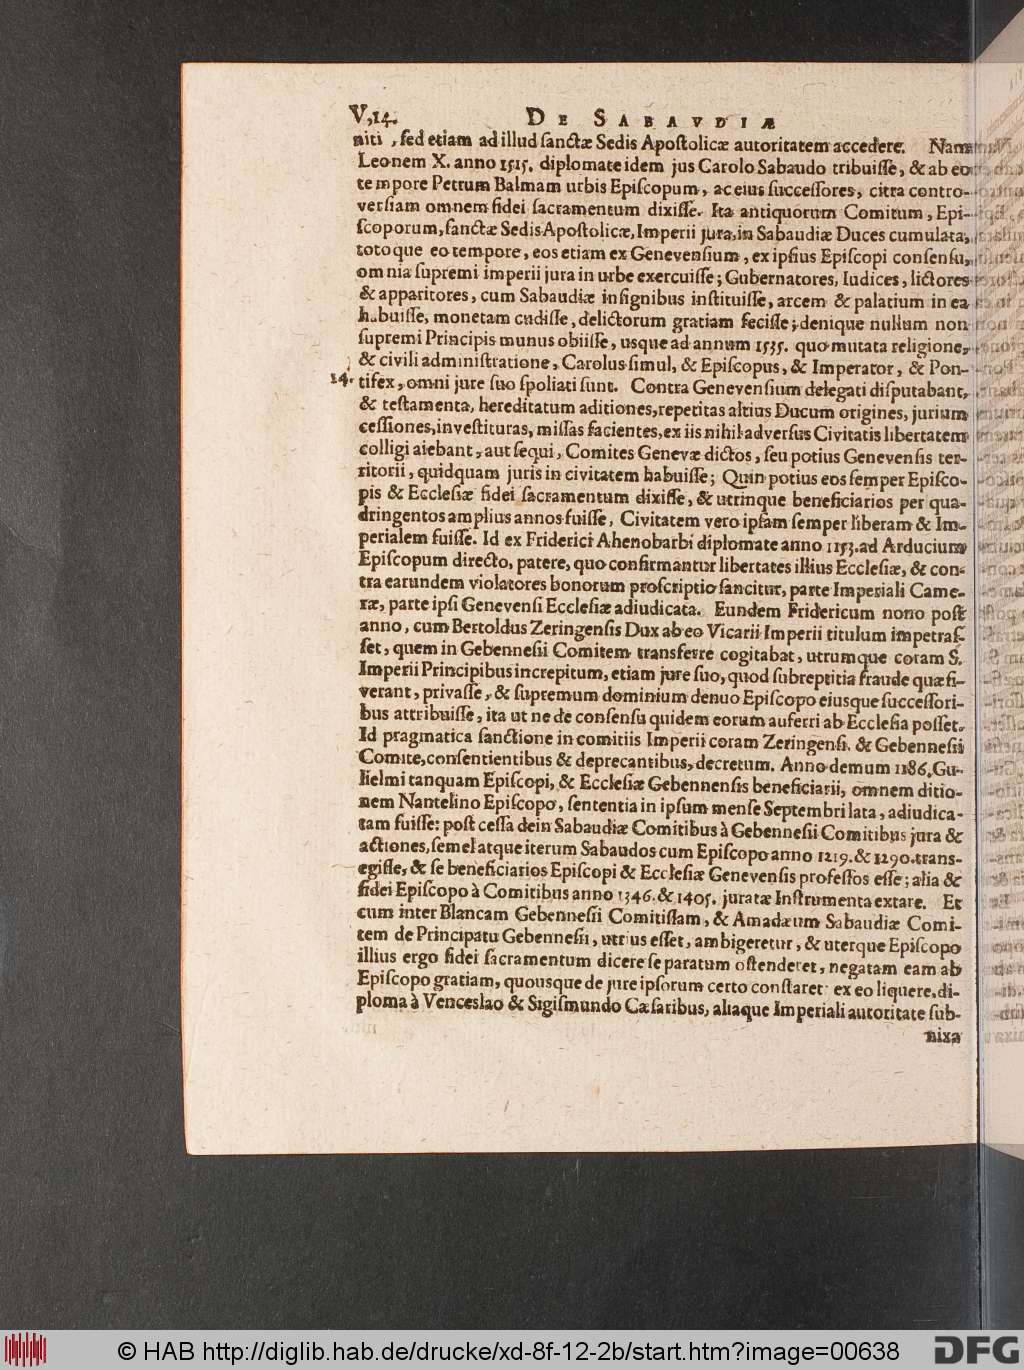 V,14. DE SABAVDIÆ
niti, sed etiam ad illud sanctæ Sedis Apostolicæ autoritatem accedere. Nam
Leonem X. anno 1515. diplomate idem jus Carolo Sabaudo tribuisse, & ab eo
tempore Petrum Balmam urbis Episcopum, ac eius successores, citra contro-
versiam omnem fidei sacramentum dixisse. Ita antiquorum Comitum, Epi-
scoporum, sanctæ Sedis Apostolicæ, Imperii jura, in Sabaudiæ Duces cumulata,
totoque eo tempore, eos etiam ex Genevensium, ex ipsius Episcopi consensu,
omnia supremi imperii jura in urbe exercuisse; Gubernatores, Iudices, lictores
& apparitores, cum Sabaudiæ insignibus instituisse, arcem & palatium in ea
habuisse, monetam cudisse, delictorum gratiam fecisse; denique nullum non
supremi Principis munus obiisse, usque ad annum 1535. quo mutata religione,
& civili administratione, Carolus simul, & Episcopus, & Imperator, & Pon-
14. tifex, omni jure suo spoliati sunt. Contra Genevensium delegati disputabant,
& testamenta, hereditatum aditiones, repetitas altius Ducum origines, jurium
cessiones, investituras, missas facientes, ex iis nihil adversus Civitatis libertatem
colligi aiebant, aut sequi, Comites Genevæ dictos, seu potius Genevensis ter-
ritorii, quidquam juris in civitatem habuisse; Quin potius eos semper Episco-
pis & Ecclesiæ fidei sacramentum dixisse, & utrinque beneficiarios per qua-
dringentos amplius annos fuisse, Civitatem vero ipsam semper liberam & Im-
perialem fuisse. Id ex Friderici Ahenobarbi diplomate anno 1153. ad Arducium
Episcopum directo, patere, quo confirmantur libertates illius Ecclesiæ, & con-
tra earundem violatores bonorum proscriptio sancitur, parte Imperiali Came-
ræ, parte ipsi Genevensi Ecclesiæ adiudicata. Eundem Fridericum nono post
anno, cum Bertoldus Zeringensis Dux ab eo Vicarii Imperii titulum impetras-
set, quem in Gebennesii Comitem transferre cogitabat, utrumque coram S.
Imperii Principibus increpitum, etiam jure suo, quod subreptitia fraude quæsi-
verant, privasse, & supremum dominium denuo Episcopo eiusque successori-
bus attribuisse, ita ut ne de consensu quidem eorum auferri ab Ecclesia posset.
Id pragmatica sanctione in comitiis Imperii coram Zeringensi. & Gebennesii
Comite, consentientibus & deprecantibus, decretum. Anno demum 1186. Gu-
lielmi tanquam Episcopi, & Ecclesiæ Gebennensis beneficiarii, omnem ditio-
nem Nantelino Episcopo, sententia in ipsum mense Septembri lata, adiudica-
tam fuisse: post cessa dein Sabaudiæ Comitibus à Gebennesii Comitibus jura &
actiones, semel atque iterum Sabaudos cum Episcopo anno 1219. & 1290. trans-
egisse, & se beneficiarios Episcopi & Ecclesiæ Genevensis professos esse; alia &
fidei Episcopo à Comitibus anno 1346. & 1405. juratæ Instrumenta extare. Et
cum inter Blancam Gebennesii Comitissam, & Amadæum Sabaudiæ Comi-
tem de Principatu Gebennesii, utrius esset, ambigeretur, & uterque Episcopo
illius ergo fidei sacramentum dicere se paratum ostenderet, negatam eam ab
Episcopo gratiam, quousque de jure ipsorum certo constaret: ex eo liquere, di-
ploma à Venceslao & Sigismundo Cæsaribus, aliaque Imperiali autoritate sub-
nixa
© HAB http://diglib.hab.de/drucke/xd-8f-12-2b/start.htm?image=00638
DFG